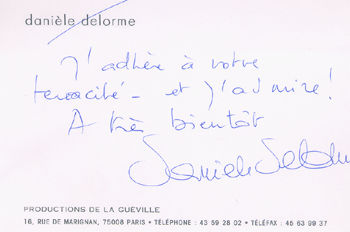 danièle delorme
J'adhère à votre
tenacité - et j'admire !
A très bientôt
Danièle Delorme
PRODUCTIONS DE LA GUÉVILLE
16, RUE DE MARIGNAN, 75008 PARIS • TÉLÉPHONE : 43 59 28 02 • TÉLÉFAX : 45 63 99 37